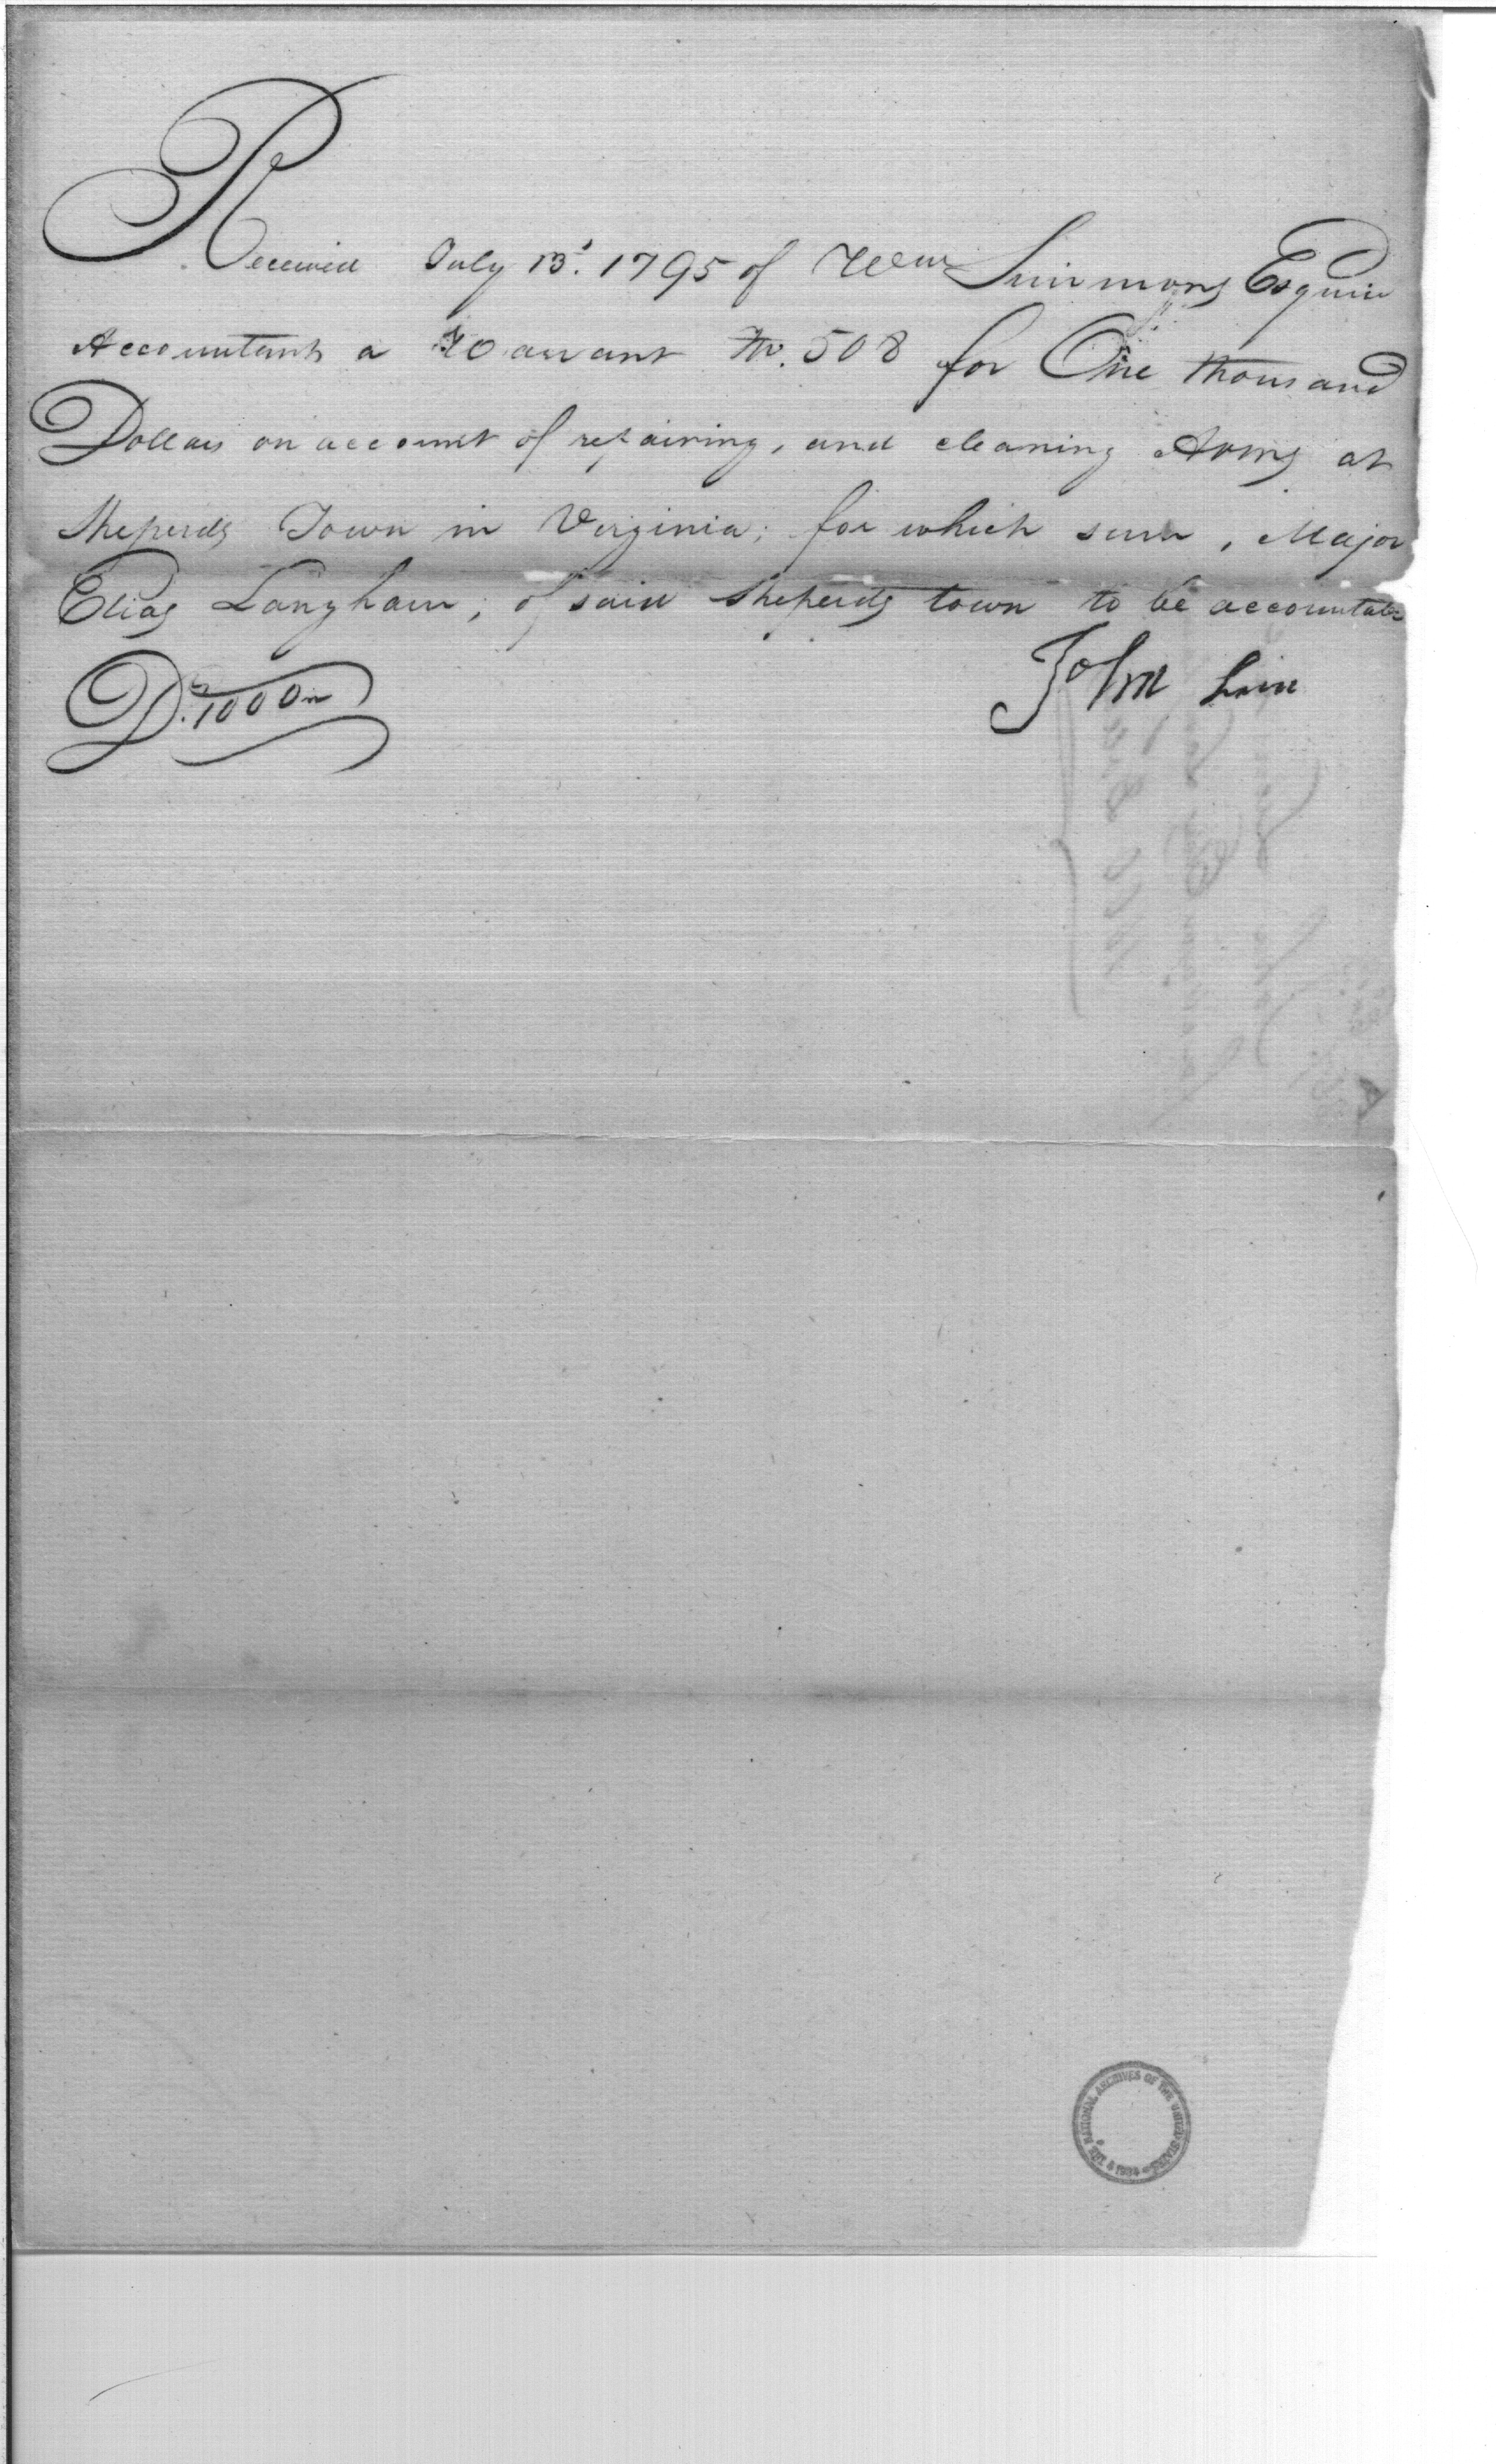 Received July 13. 1795 of Wm Simmons Esquire
Accountant a Warrant No. 508 for One thousand
Dollars on account of repairing, and cleaning Arms at
Sheperds Town in Virginia; for which sum, Major
Elias Langham, of said Sheperds town to be accountable
D.s 1000
John
THE NATIONAL ARCHIVES OF THE UNITED STATES
1934